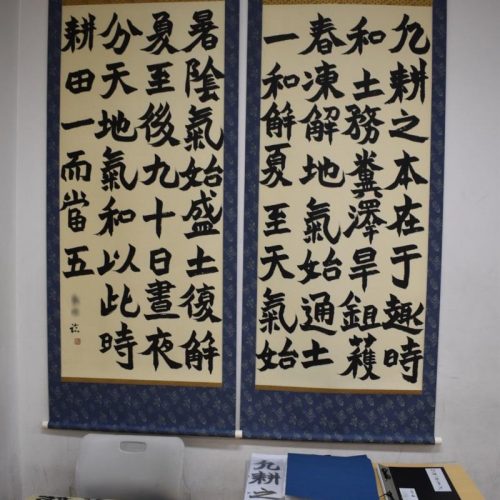 凡耕之本在于趣時
和土務糞澤旱鉏穫
春凍解地氣始通土
一和解夏至天氣始
暑陰氣始盛土復解
夏至後九十日晝夜
分天地氣和以此時
耕田一而當五
凡耕之